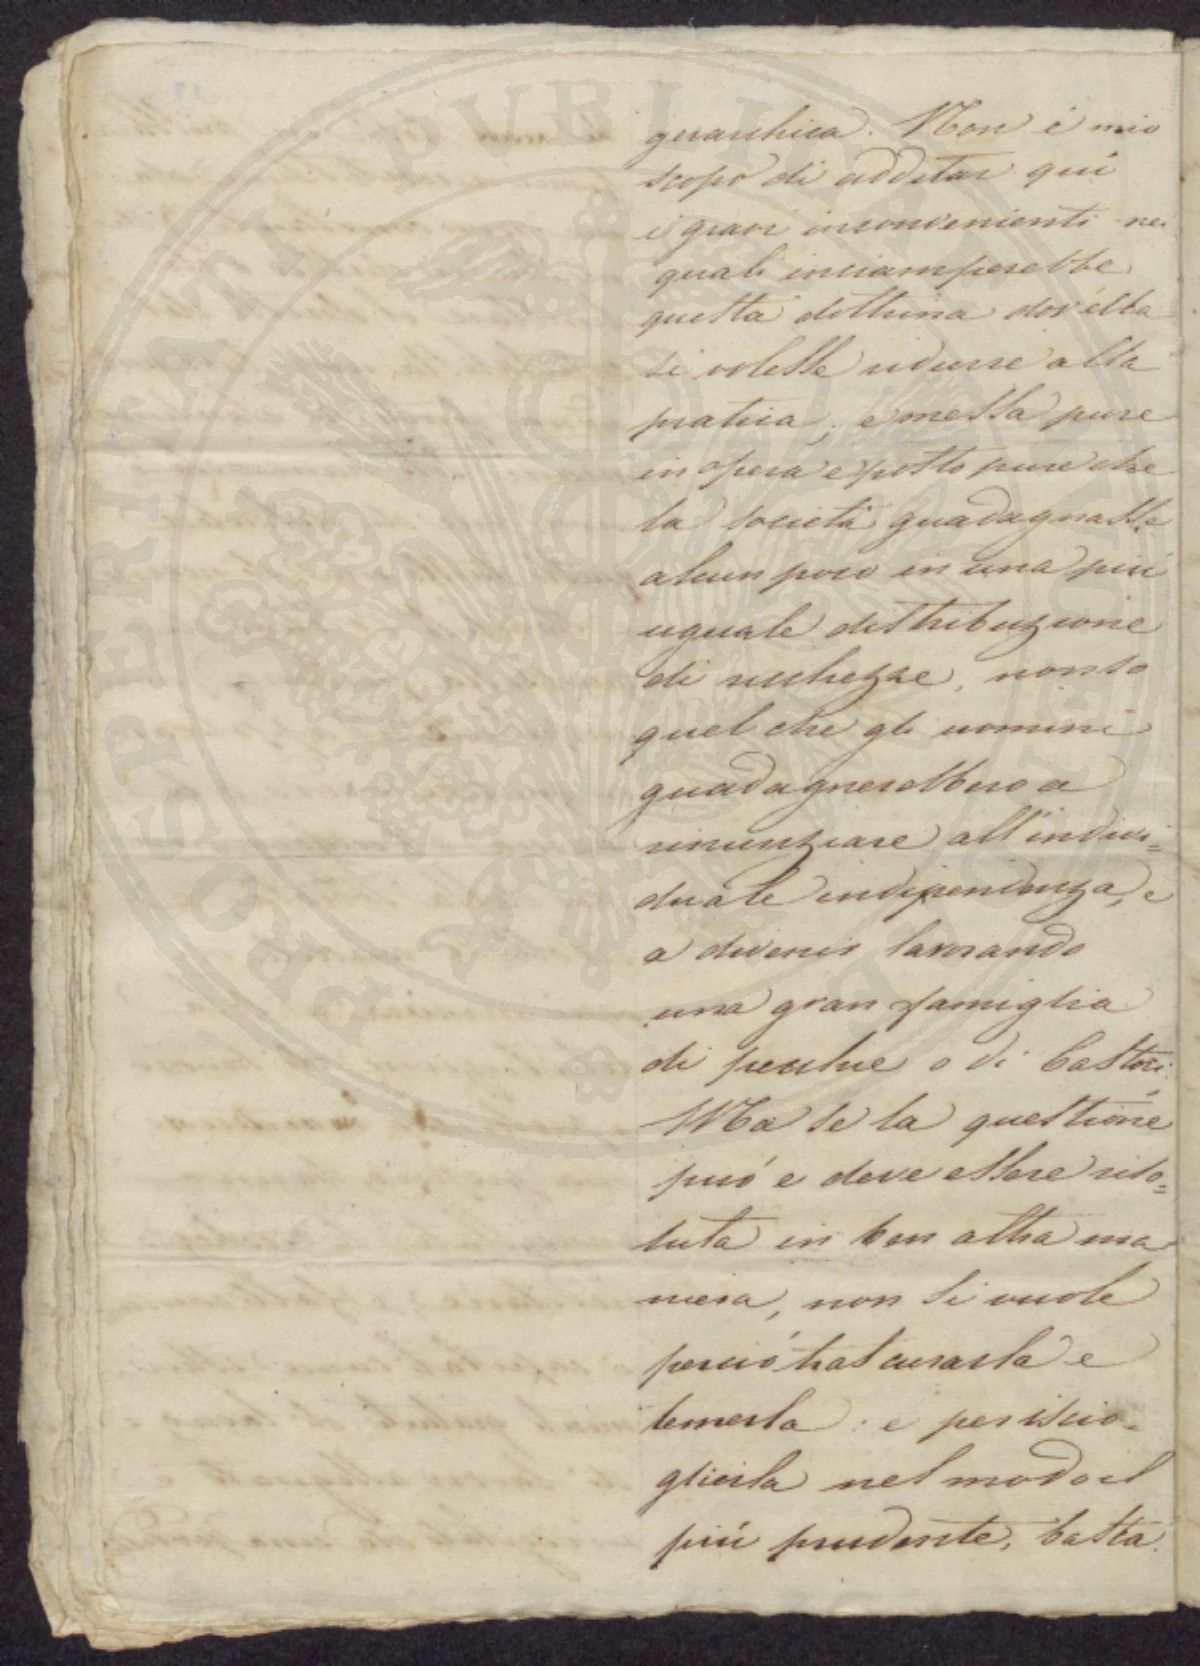 gerarchica. Non è mio
scopo di additar quì
i gravi inconvenienti ne'
quali inciamperebbe
questa dottrina dov'ella
si volesse ridurre alla
pratica; e messa pure
in opera e posto pure che
la società guadagnasse
alcun poco in una più
uguale distribuzione
di ricchezze, non so
quel che gli uomini
guadagnerebbero a
rinunziare all'indivi=
duale indipendenza, e
a divenir lavorando
una gran famiglia
di pecchie o di Castori.
Ma se la questione
può e deve essere riso=
luta in ben altra ma
niera, non si vuole
perciò trascurarla e
temerla: e per iscio=
glierla nel modo il
più prudente, basta
PROSPERITATI PUBLICAE